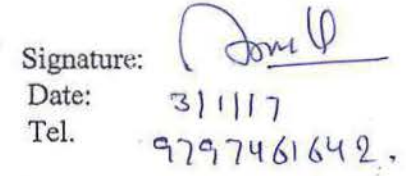 Signature:
Date: 3/1/17
Tel. 9797461642.